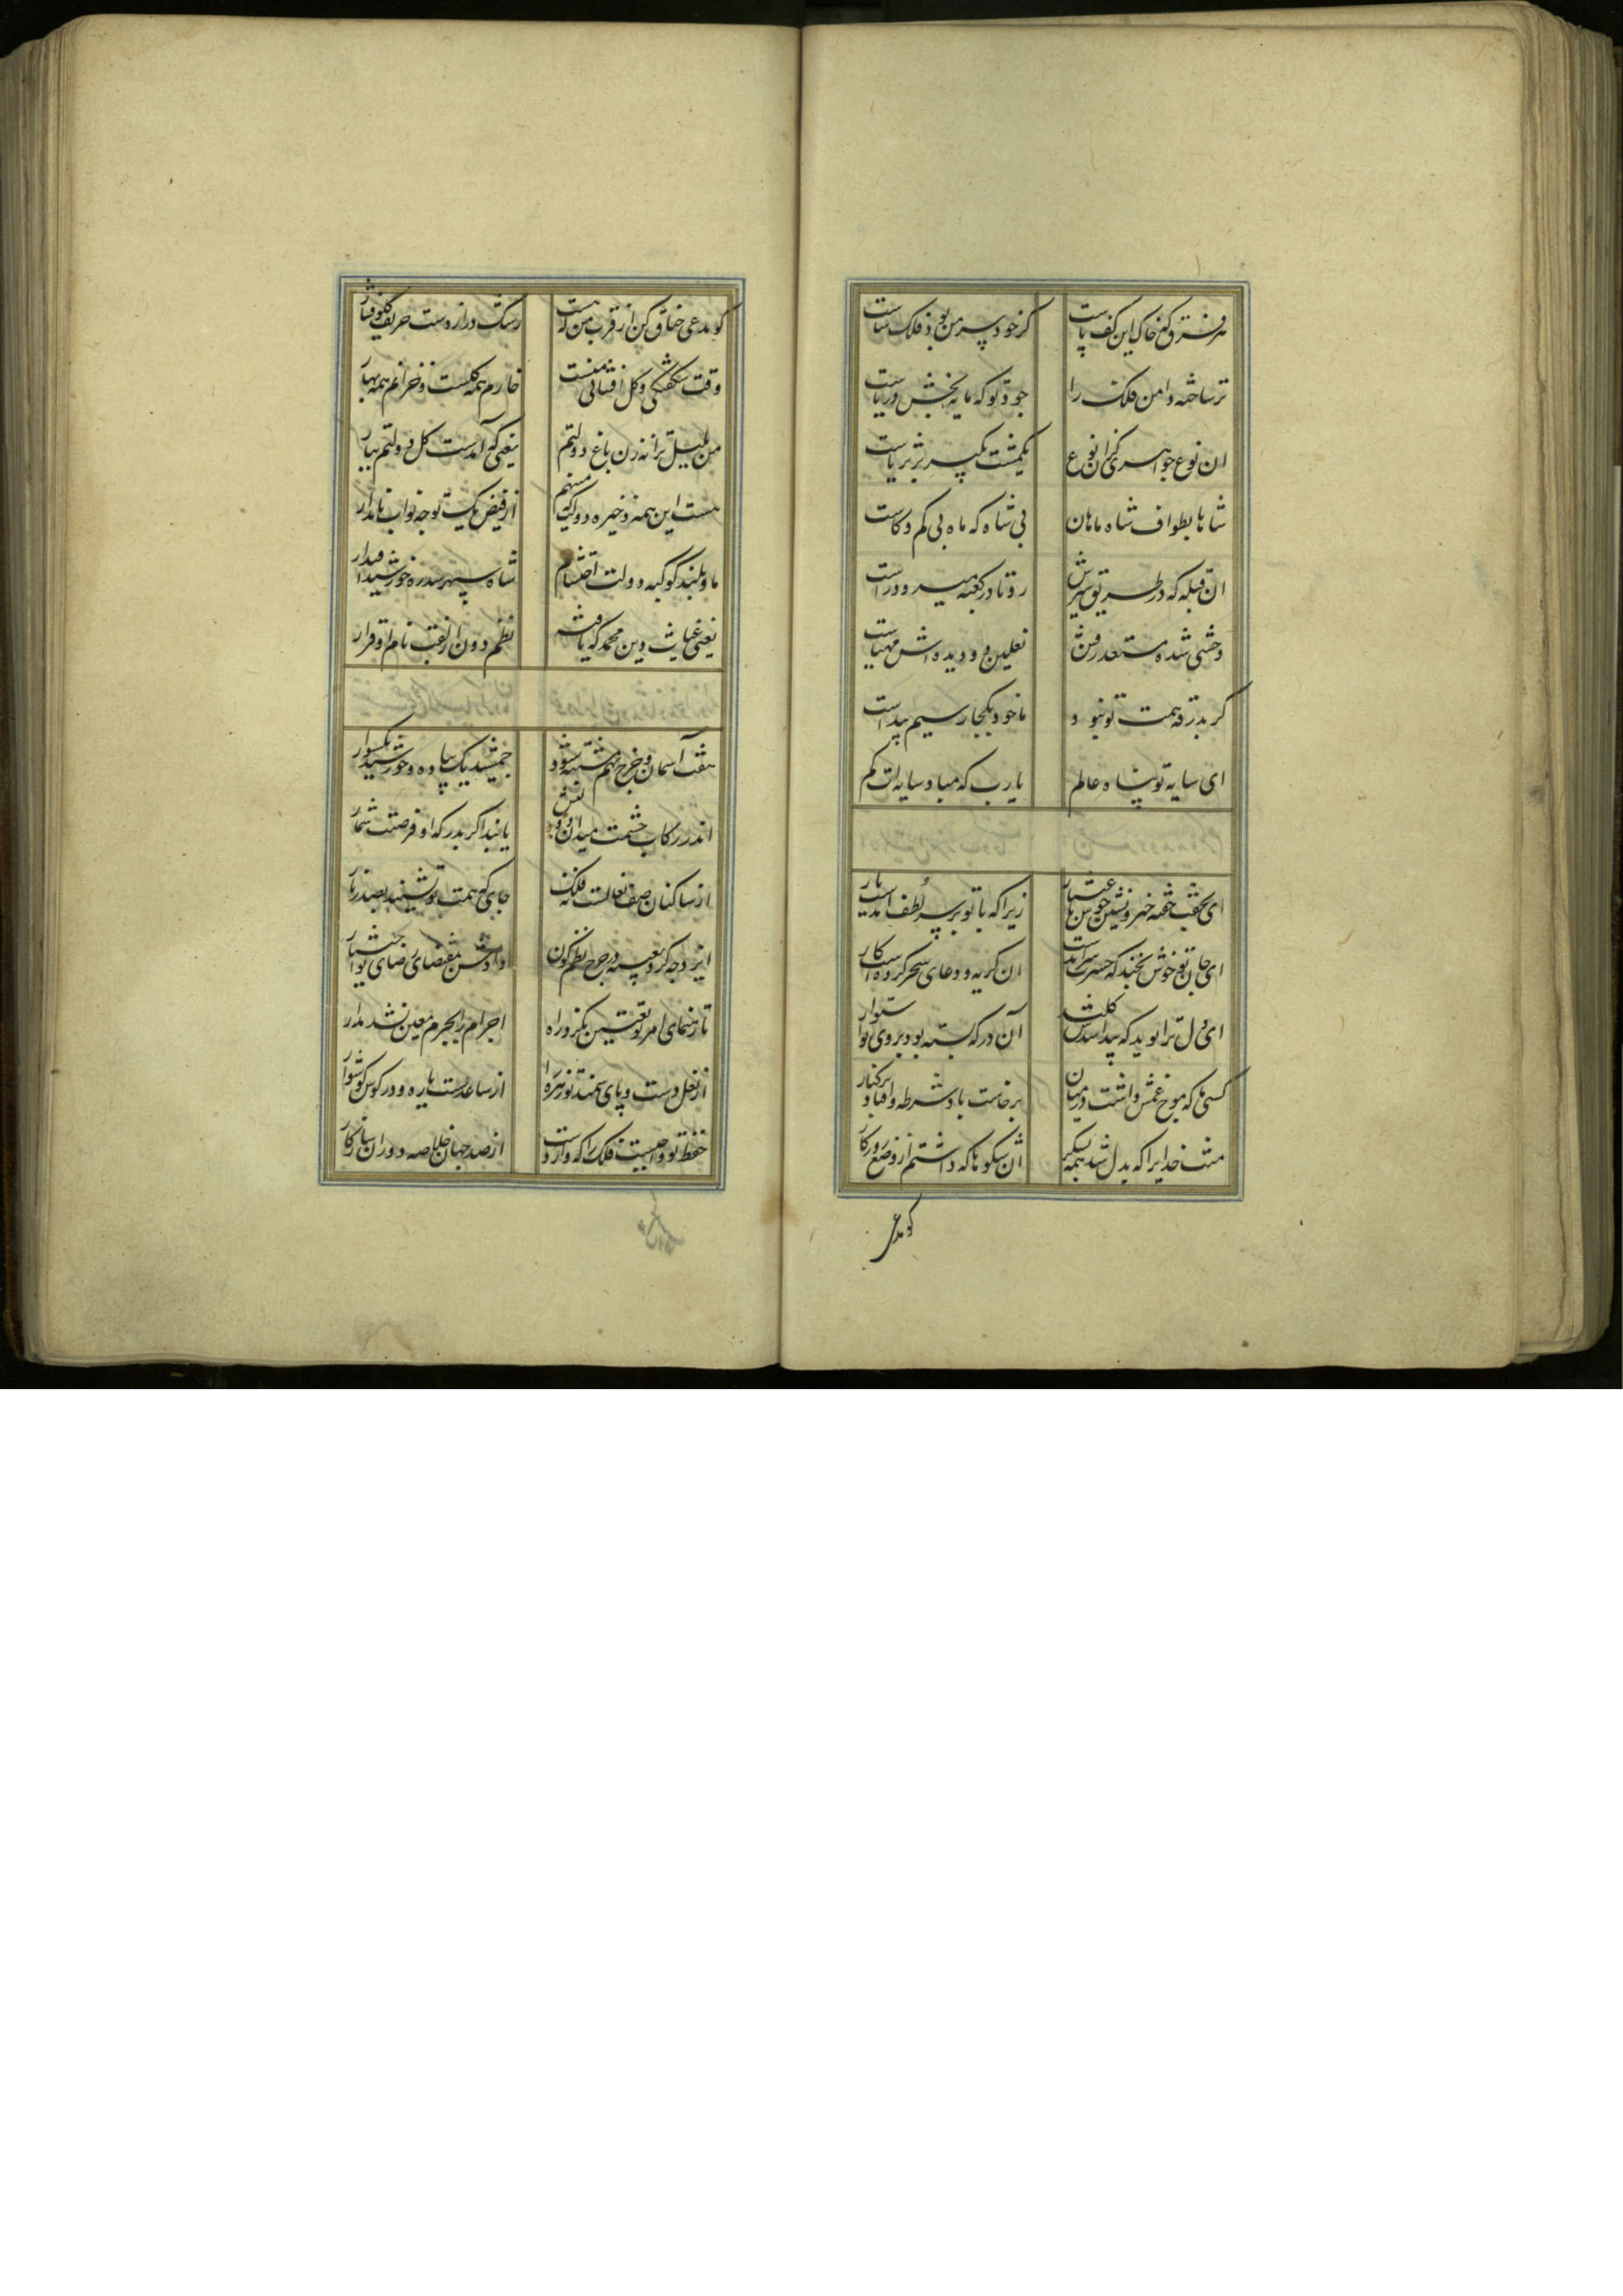 هر فرق کز خاک این کف پاست
کز خود سر من بود فلک ساست
تر ساخته دامن فلک را
جود تو که مایه بخش دریاست
ان نوع جواهری کزان نوع
یکمشت بگیر بر ثریاست
شاها بطواف شاه ماهان
بی شاه که ماه بی کم و کاست
ان قبله که در طریق سیرش
رو تا در کعبه میرود راست
وحشی شده مستعد رفتن
نعلین دو دیده اش مهیاست
گر بدرقه همت تو نبود
ما خود بکجا رسیم پیداست
ای سایه تو پناه عالم
یارب که مباد سایه ات کم
ای بخت خفته خیز و نشین خوش
زیرا که با تو بر سر لطف امدست یار
ای جان تو خوش بخند که حسرت سرامدست
ان گریه و دعای سحر کرده است کار
ای دل ترا نوید که پیدا شدش کلید
آن در که بسته بود بروی تو استوار
کشتی ما که موج غمش داشت در میان
برخاست باد شرطه و افتاد بر کنار
منت خدایرا که بدل شد همه بشکر
ان شکوها که داشتم از وضع روزگار
گو مدعی
گو مدعی خناق کن از قرب من که هست
رشکت دراز دست حریف گلو فشار
وقت شکفتگی و گل افشانی منست
خارم همه گلست و خزانم همه بهار
من بلبل ترانه زن باغ دولتم
یعنی که آمدست گل دولتم ببار
هست این همه ذخیره دولت که میبرم
از فیض یک توجه نواب نامدار
ماه بلند کوکبه دولت احتشام
شاه سپهر سده خورشید اقتدار
یعنی غیاث دین محمد که یافته
نظم دو کون از لقب نام او قرار
هفت آسمان و چرخ نهم مشتبه شود
جمشید یک پیاده و خورشید یکسوار
اندر رکاب حشمت میدان
یابند اگر بدرگه او فرصت شمار
از ساکنان صف نعالست نه فلک
جایی که همت تو نشیند بصدر بار
ایزد چه کرد تعبیه در چرخ نظم کون
دادش بمقتضای رضای تو اختیار
تا رهنمای امر تو تعیین نکرد راه
اجرام را بجرم معین نشد مدار
از نعل دست و پای سمند تو زهره را
از ساعدست یاره و در گوش گوشوار
حفظ تو واجبست فلک را که دار دست
از صد جهان خلاصه دوران سازگار